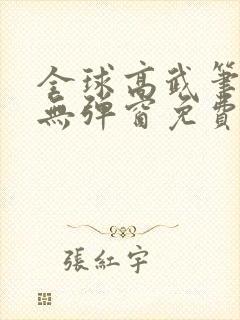 全球高武筆
無彈窗免費
張紅宇